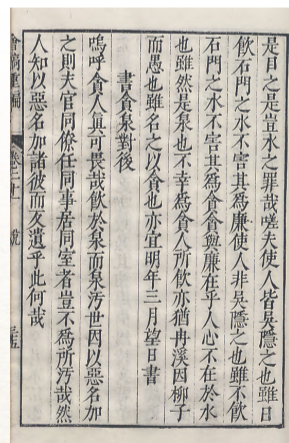 是目之是豈水之罪哉嗟夫使人皆吳隱之也雖日
飲石門之水不害其為廉使人非吳隱之也雖不飲
石門之水不害其為貪貪與廉在乎人心不在於水
也雖然是泉也不幸為貪人所飲亦猶冉溪因柳子
而愚也雖名之以貪也亦宜明年三月望日書
書貪泉對後
嗚呼貪人真可畏哉飲於泉而泉汚世因以惡名加
之則夫官同僚任同事居同室者豈不為所汚哉然
人知以惡名加諸彼而反遺乎此何哉